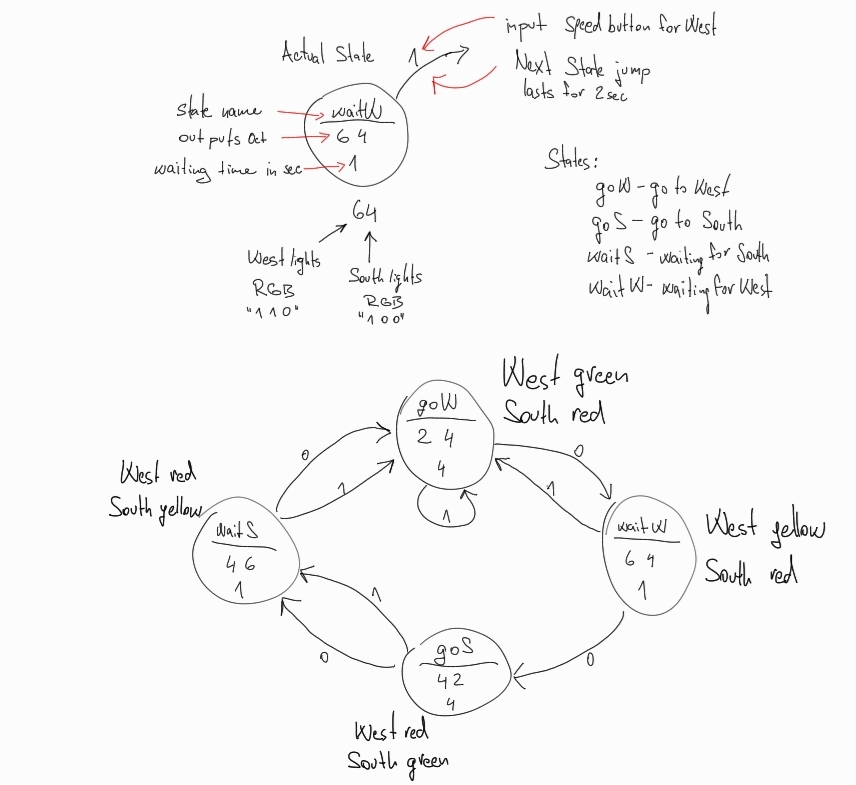 Actual State
1
input speed button for West
Next State jump
lasts for 2sec
state name
waitW
outputs Oct
6 4
waiting time in sec
1
64
West lights
RGB
"110"
South lights
RGB
"100"
States:
goW - go to West
goS - go to South
waitS - waiting for South
waitW - waiting for West
West green
South red
goW
2 4
4
0
1
0
1
1
West red
South yellow
waitS
4 6
1
waitW
6 4
1
West yellow
South red
1
0
0
goS
4 2
4
West red
South green